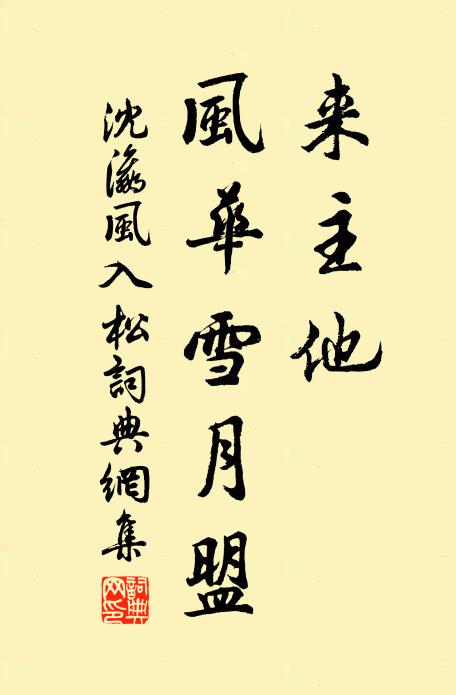 来主他
風華雪月盟
沈瀛風入松詞典網集
詞典網印